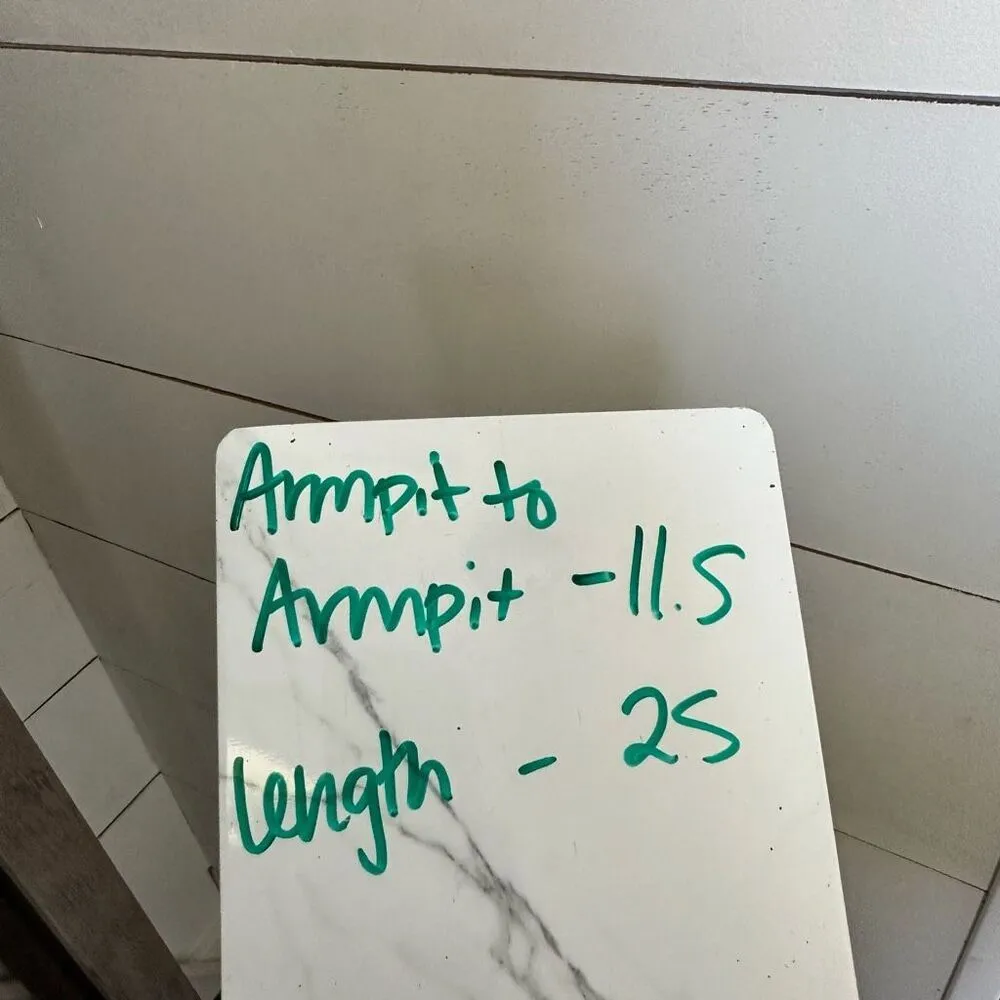 Armpit to
Armpit - 11.5
Length - 25